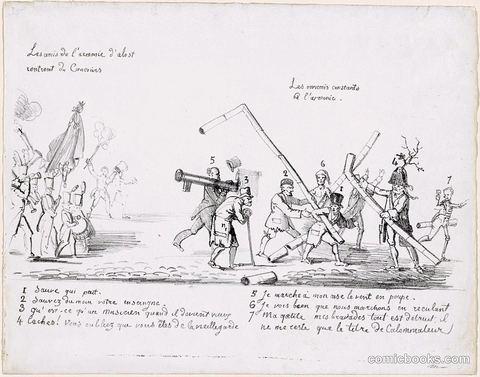 Les amis de l'armonie d'alost
rentrent du Concours
Les ennemis constants
à l'armonie.
5
3
2
6
1
4
7
1 Sauve qui peut.
2 Sauvez du moin votre enseigne.
3 qu'est-ce qu'un musicien quand il devient vieux
4 Laches! Vous oubliez que vous êtes de la vieille garde
5 je marche à mon aise le vent en poupe.
6 je vois bien que nous marchons en reculant
7 Ma gaîté mes bravades tout est détruit il
ne me reste que le titre de Calomniateur
comicbooks.com